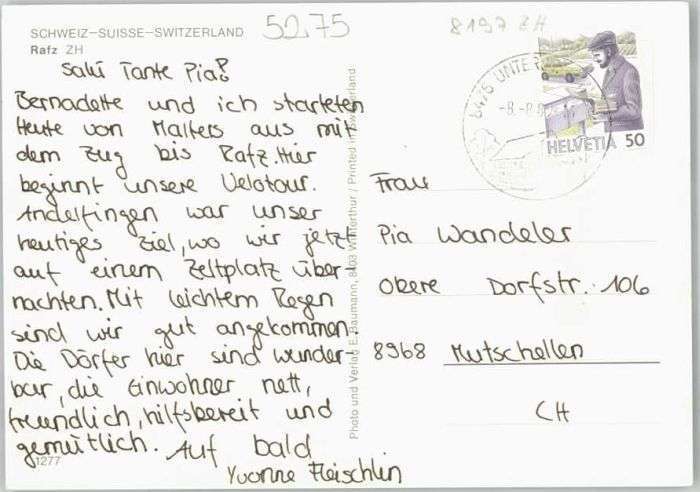 SCHWEIZ-SUISSE-SWITZERLAND
Rafz ZH
5275
8197 ZH
HELVETIA 50
Salü Tante Pia!
Bernadette und ich starteten
Heute von Malters aus mit
dem Zug bis Rafz. Hier
beginnt unsere Velotour.
Andelfingen war unser
heutiges Ziel, wo wir jetzt
auf einem Zeltplatz über-
nachten. Mit leichtem Regen
sind wir gut angekommen.
Die Dörfer hier sind wunder-
bar, die Einwohner nett,
freundlich, hilfsbereit und
gemütlich. Auf bald
Yvonne Fleischlin
1277
Photo und Verlag E. Baumann, 8403 Winterthur / Printed in Switzerland
Frau
Pia Wandeler
Obere Dorfstr. 106
8968 Mutschellen
CH